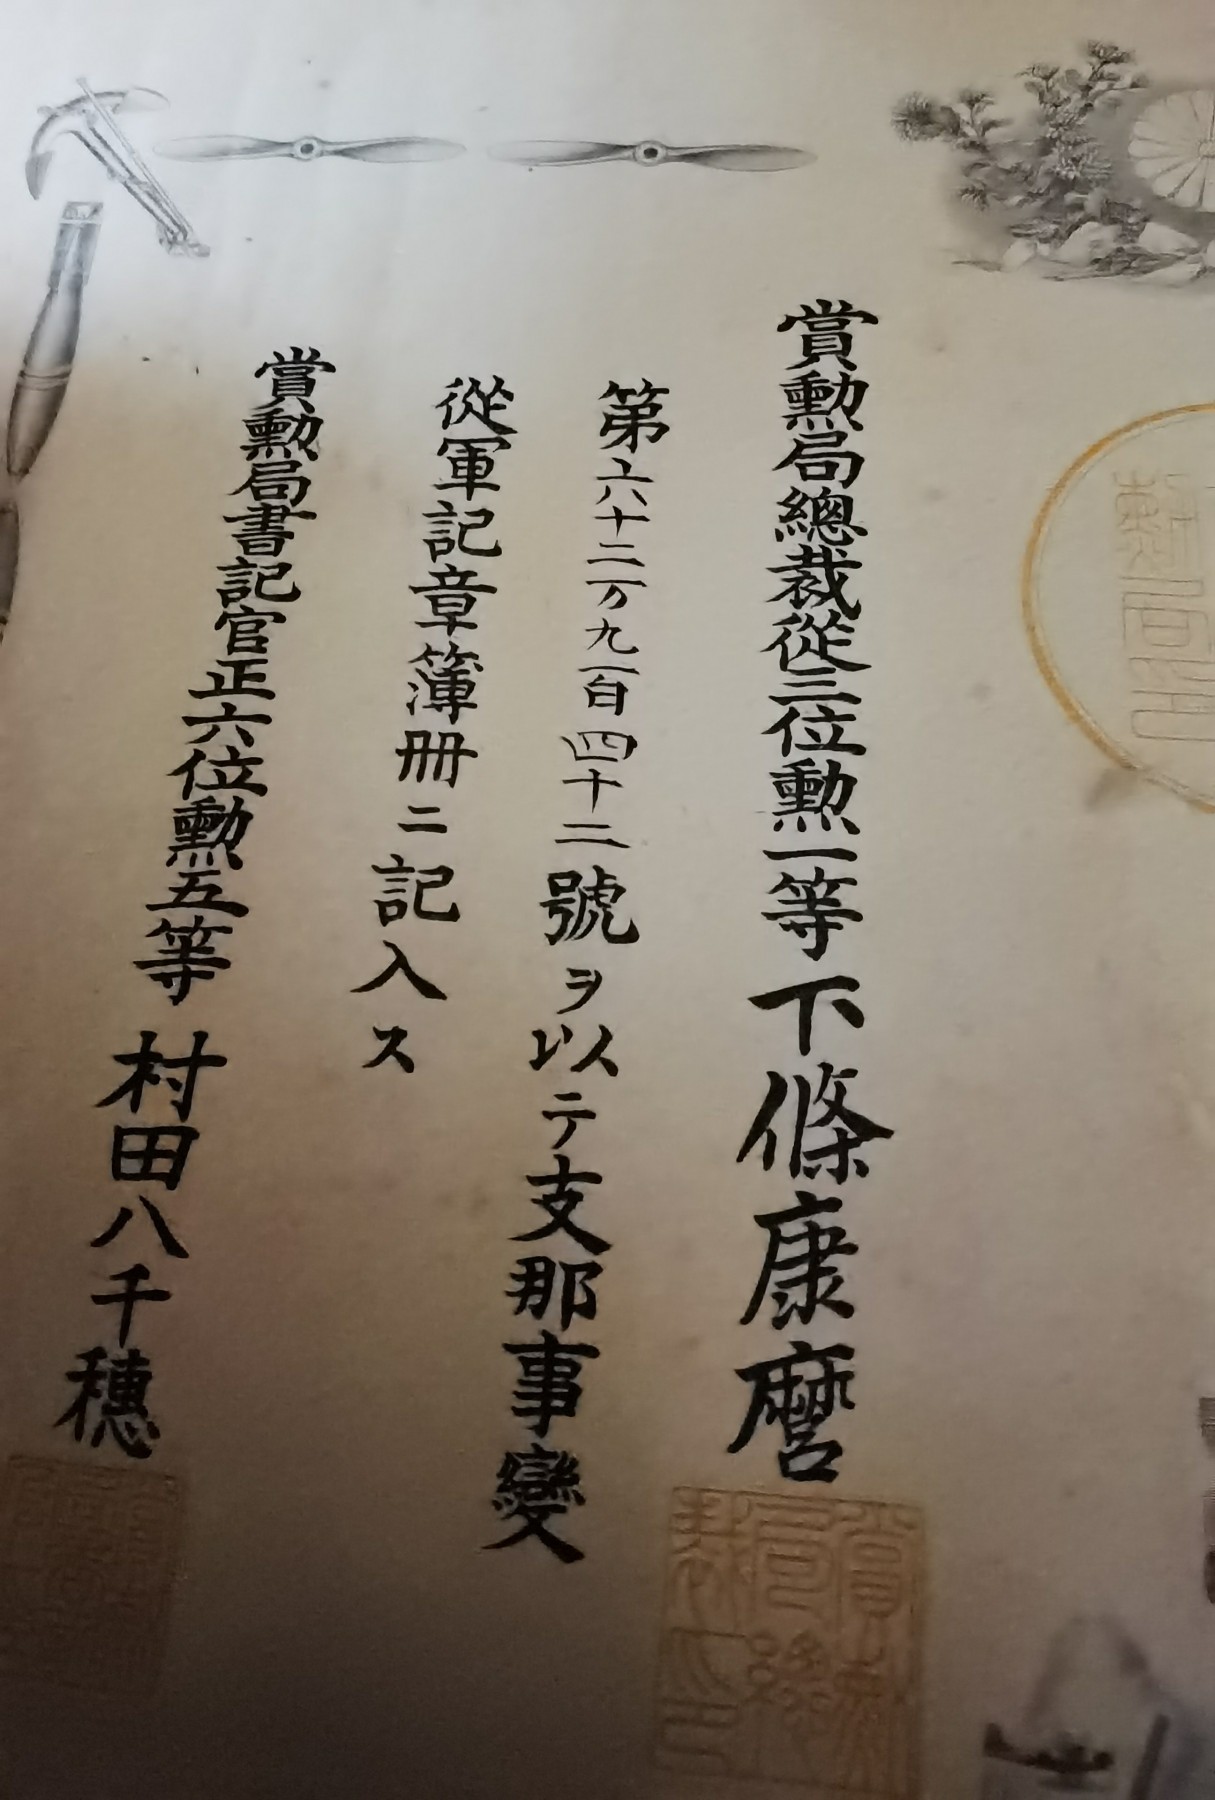 賞勲局總裁從三位勲一等下條康麿
第六十二万九百四十二號ヲ以テ支那事變
從軍記章簿册ニ記入ス
賞勲局書記官正六位勲五等村田八千穗